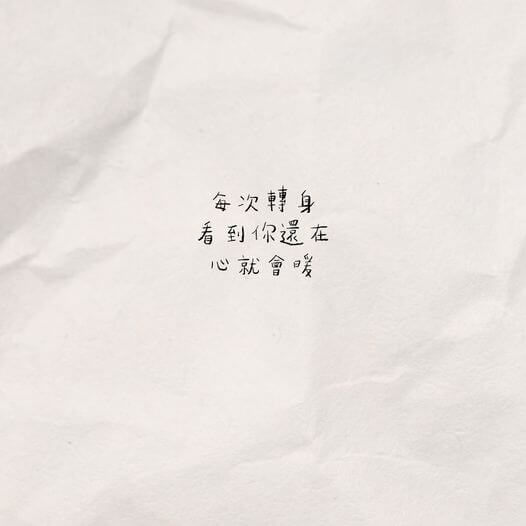 每次轉身
看到你還在
心就會暖